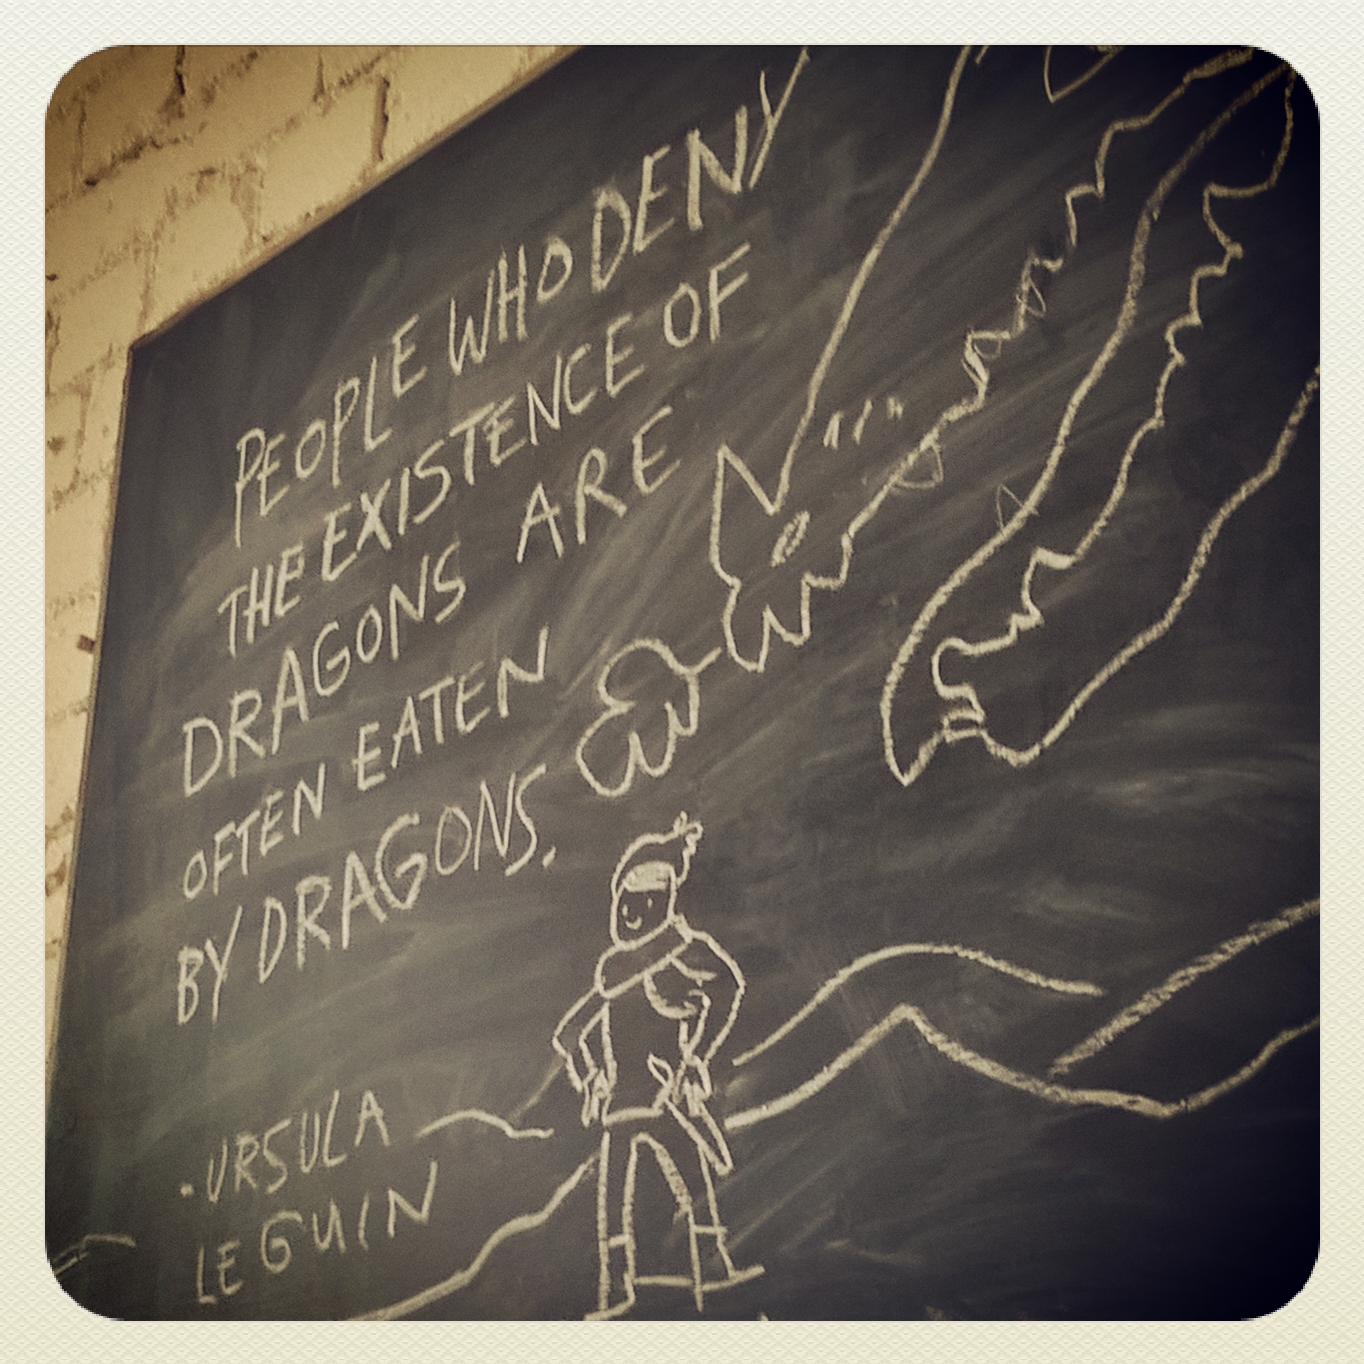 PEOPLE WHO DENY
THE EXISTENCE OF
DRAGONS ARE
OFTEN EATEN
BY DRAGONS.
·URSULA
LE GUIN